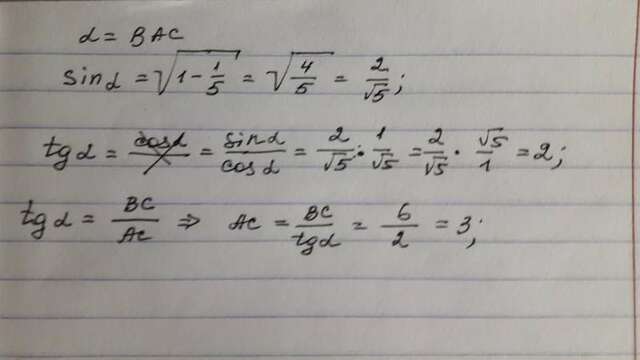 α = BAC
sinα = √(1 - 1/5) = √(4/5) = 2/√5;
tgα = = sinα/cosα = 2/√5 : 1/√5 = 2/√5 · √5/1 = 2;
tgα = BC/AC ⇒ AC = BC/tgα = 6/2 = 3;